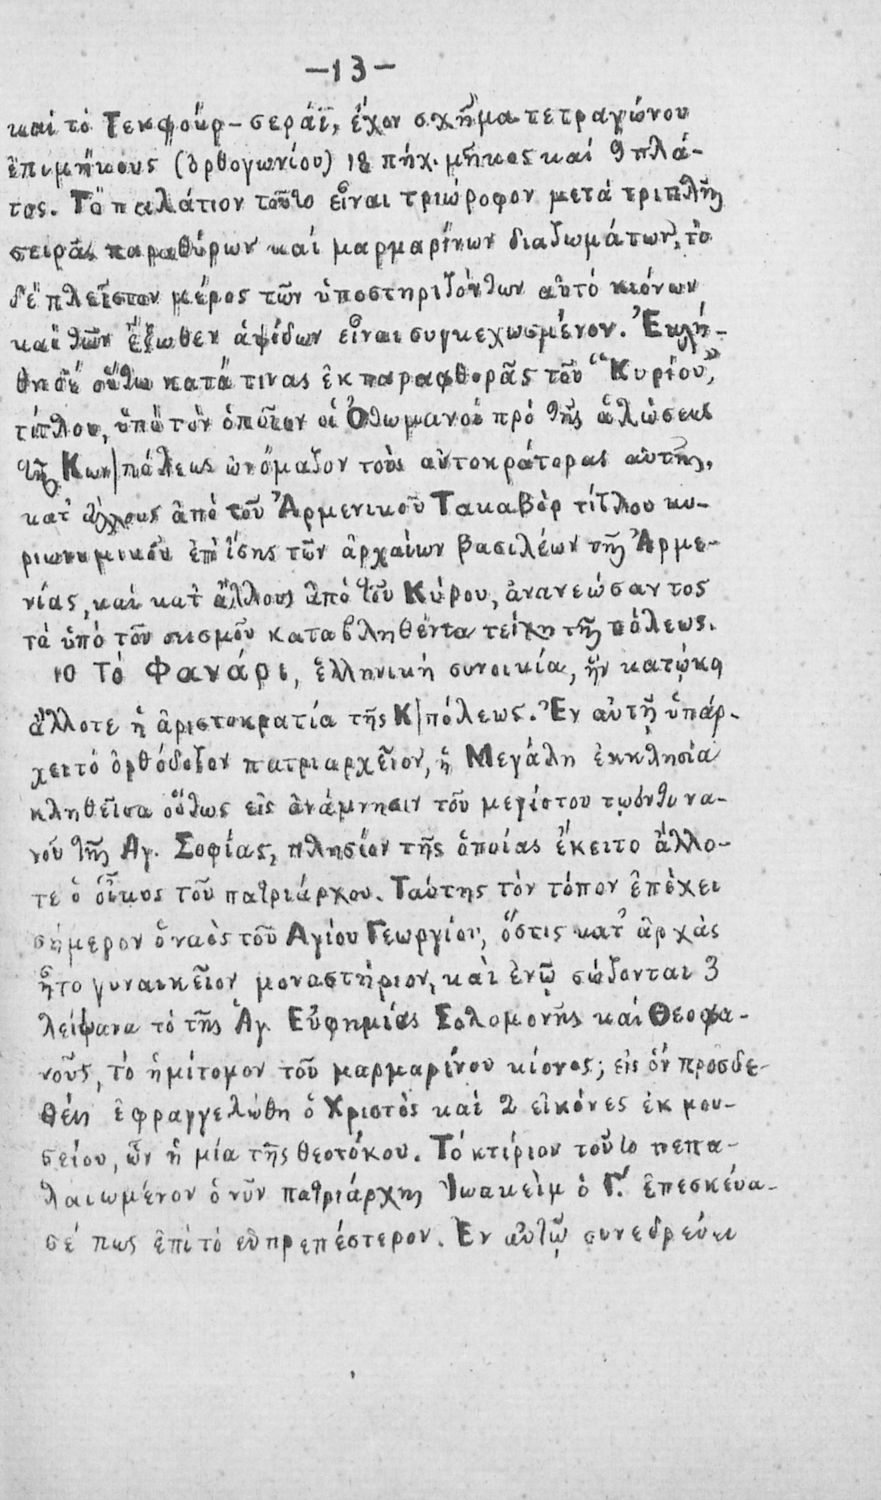 —13—
καί τό Τεκφούρ-σεράϊ, ἔχον σχῆμα τετραγώνου
ἐπιμήκους (ὀρθογωνίου) 18 πήχ. μῆκος καί 9 πλά-
τος. Τό παλάτιον τοῦτο εἶναι τριώροφον μετά τριπλῆς
σειρᾶς παραθύρων καί μαρμαρίνων διαζωμάτων, τό
δέ πλεῖστον μέρος τῶν ὑποστηριζόντων αὐτό κιόνων
καί τῶν ἔξωθεν ἁψίδων εἶναι συγκεχωσμένον. Ἐκλή-
θη δέ οὕτω κατά τινας ἐκ παραφθορᾶς τοῦ "Κυρίου",
τίτλου, ὑπό τόν ὁποῖον οἱ Ὀθωμανοί πρό τῆς ἁλώσεως
τῆς Κων|πόλεως ὠνόμαζον τούς αὐτοκράτορας αὐτῆς,
κατ' ἄλλους ἀπό τοῦ Ἀρμενικοῦ Τακαβόρ τίτλου κυ-
ριωνυμικοῦ ἐπίσης τῶν ἀρχαίων βασιλέων τῆς Ἀρμε-
νίας, καί κατ' ἄλλους ἀπό τοῦ Κύρου, ἀνανεώσαντος
τά ὑπό τοῦ σεισμοῦ καταβληθέντα τείχη τῆς πόλεως.
10 Τό Φανάρι, ἑλληνική συνοικία, ἥν κατῴκη
ἄλλοτε ἡ ἀριστοκρατία τῆς Κ|πόλεως. Ἐν αὐτῇ ὑπάρ-
χει τό ὀρθόδοξον πατριαρχεῖον, ἡ Μεγάλη ἐκκλησία
κληθεῖσα οὕτως εἰς ἀνάμνησιν τοῦ μεγίστου τῳόντι να-
νοῦ τῆς Ἁγ. Σοφίας, πλησίον τῆς ὁποίας ἔκειτο ἄλλο-
τε ὁ οἶκος τοῦ πατριάρχου. Ταύτης τόν τόπον ἐπέχει
σήμερον ὁ ναός τοῦ Ἁγίου Γεωργίου, ὅστις κατ' ἀρχάς
ἦτο γυναικεῖον μοναστήριον, καί ἐν ᾧ σώζονται 3
λείψανα τό τῆς Ἁγ. Εὐφημίας Σολομονῆς καί Θεοφα-
νοῦς, τό ἡμίτομον τοῦ μαρμαρίνου κίονος, εἰς ὅν προσδε-
θείς ἐφραγγελώθη ὁ Χριστός καί 2 εἰκόνες ἐκ μου-
σείου, ὧν ἡ μία τῆς Θεοτόκου. Τό κτίριον τοῦτο πεπα-
λαιωμένον ὁ νῦν πατριάρχης Ἰωακείμ ὁ Γ'. ἐπεσκεύα-
σέ πως ἐπί τό εὐπρεπέστερον. Ἐν αὐτῷ συνεδρεύει